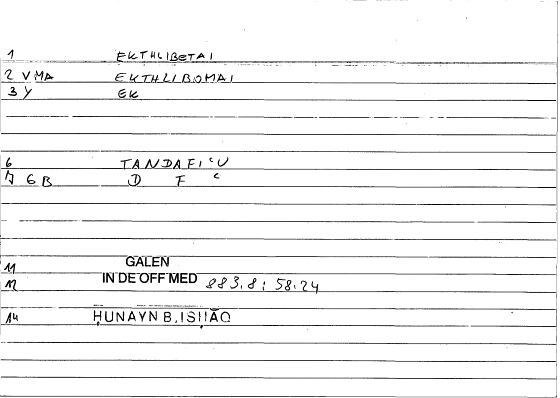 1 EKTHLIBETAI
2 VMA EKTHLIBOMAI
3 Y EK
6 TANDAFIʿU
7 GB D F ʿ
11 GALEN
12 IN DE OFF MED 883.8 : 58.24
14 ḤUNAYN B. ISḤĀQ